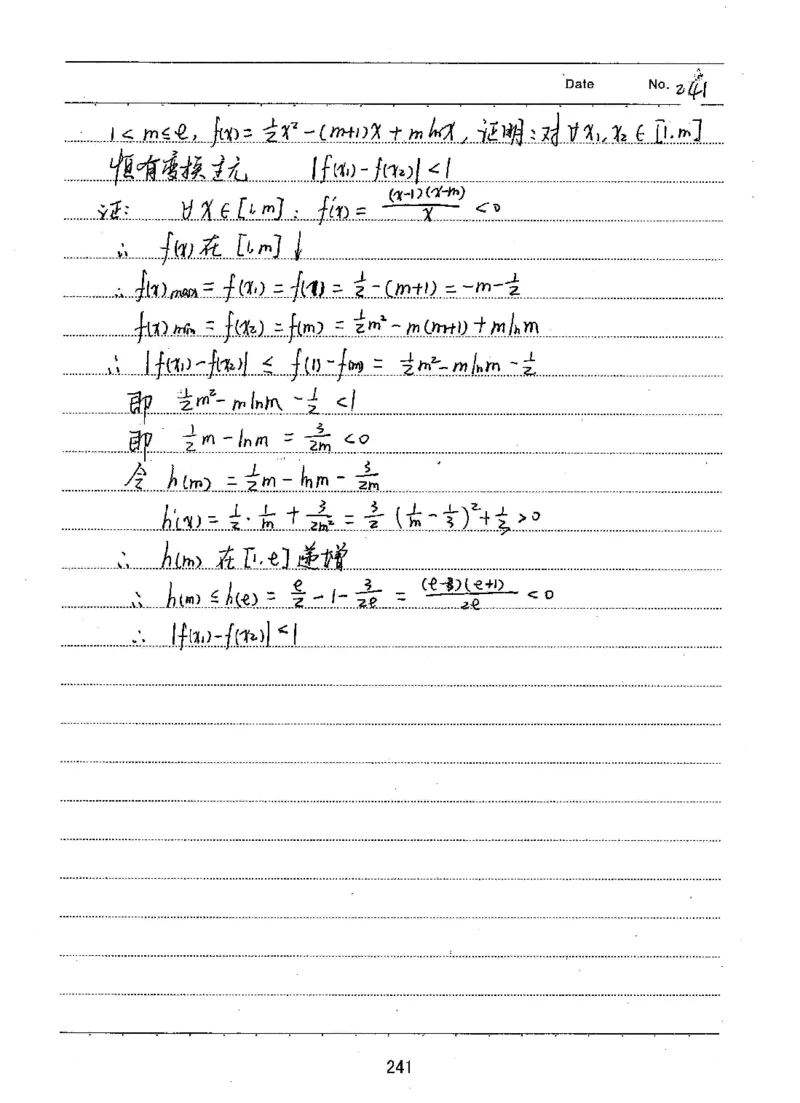 Date No. 241
1<m≤e, f(x)=½x²-(m+1)x+mlnx, 证明:对∀x₁,x₂∈[1,m]
恒有变换主元 |f(x₁)-f(x₂)|<1
证: ∀x∈[1,m]: f'(x)=(x-1)(x-m)/x <0
∴ f(x)在[1,m]↓
∴ f(x)max=f(x₁)=f(1)=½-(m+1)=-m-½
f(x)min=f(x₂)=f(m)=½m²-m(m+1)+mlnm
∴ |f(x₁)-f(x₂)|≤f(1)-f(m)=½m²-mlnm-½
即 ½m²-mlnm-½<1
即 ½m-lnm=3/2m<0
令 h(m)=½m-lnm-3/2m
h'(x)=½·1/m+3/2m²=3/2(1/m-1/3)²+1/3>0
∴ h(m)在[1,e]递增
∴ h(m)≤h(e)=e/2-1-3/2e=(e-3)(e+1)/2e<0
∴ |f(x₁)-f(x₂)|<1
241